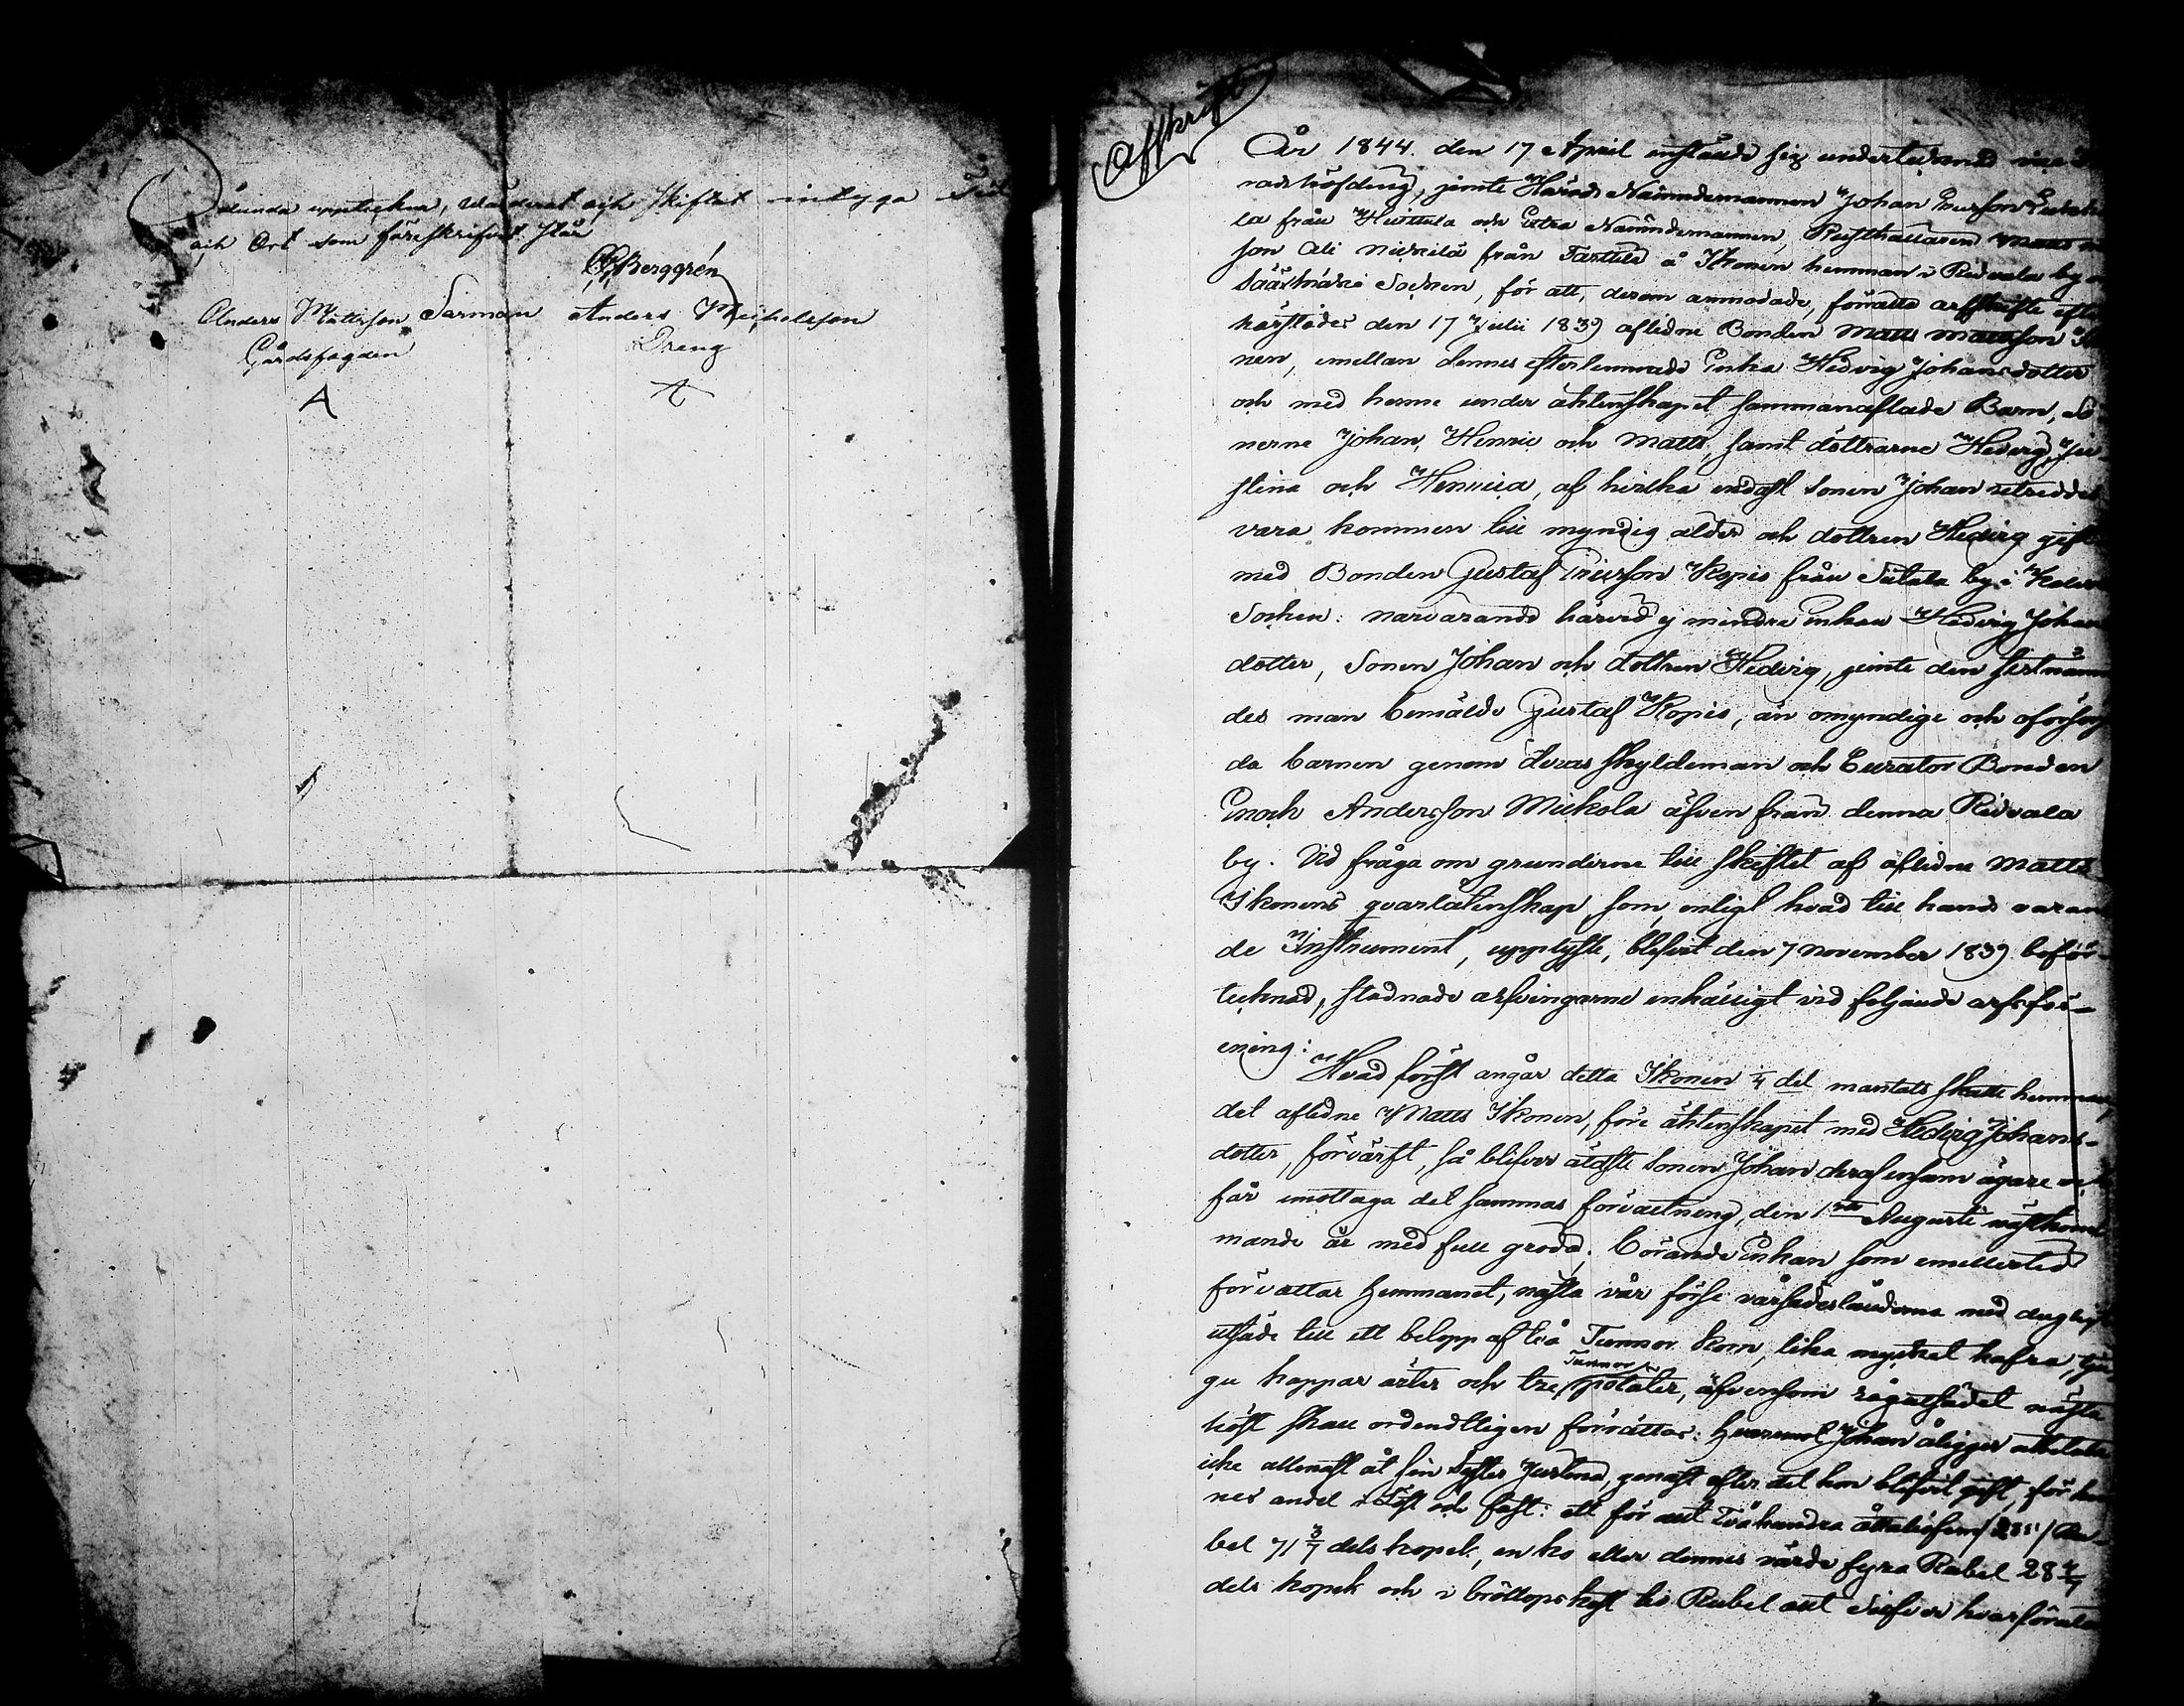 Sålunda upptecknadt, värderat och skiftat intyga Tid
och Ort som föreskrifvit står
Berggrén
Anders Mattsson Sarman Anders Michelsson
Gårdsfogden Dreng
A
Affskrift
År 1844. den 17 April instälde sig undertecknad
radshöfding, jemte Härads Nämndemannen Johan
la från Huittula och Extra Nämndemannen, Rusthållaren Matts
son Ali Nickilä från Tarttila å Ikonen hemman i Ridvala by
Sääksmäki Socken, för att, derom anmodade, förrätta arfskifte efter
härstädes den 17 Julii 1839 aflidne Bonden Matts Mattsson Iko
nen, emellan dennes efterlemnade Enka Hedvig Johansdotter
och med henne under äktenskapet sammanaflade Barn, Sö
nerne Johan, Henric och Matts, samt döttrarne Hedvig, Ju
stina och Henrica, af hvilka endast sonen Johan utreddes
vara kommen till myndig ålder och dottren Hedvig gift
med Bonden Gustaf Kopis från by i
Socken: närvarande härvid ej mindre Enkan Hedvig Johans
dotter, Sonen Johan och dottren Hedvig, jemte den sistnäm
des man bemälde Gustaf Kopis, än omyndige och oförsörj
da barnen genom deras skyldeman och Curator Bonden
Enoch Andersson Mickola äfven från denna Ridvala
by. Vid fråga om grunderne till skiftet af aflidne Matts
Ikonens qvarlåtenskap, som, enligt hvad till hands varan
de Instrument, upplyste, blifvit den 7 November 1839 beför-
tecknad, stadnade arfvingarne enhälligt vid följande arfsför-
ening:
Hvad först angår detta Ikonen ¼ del mantals skatte hemman,
det aflidne Matts Ikonen, före äktenskapet med Hedvig Johans-
dotter, förvärft, så blifver äldste sonen Johan deraf ensam ägare och
får emottaga det sammas förvaltning, den 1sta Augusti nästkom
mande år med full gröda; börande Enkan, som emellertid
förvaltar Hemmanet, nästa vår förse vårsädesländerna med dugligt
utsäde till ett belopp af två Tunnor Korn, lika mycket hafra, tju
gu kappar ärter och tre Tunnor potäter, äfvensom rågutsädet nästa
höst skall ordendtligen förrättas: Hvaremot Johan åligger att betala
icke allenast åt sin Syster Justina, genast efter det hon blifvit gift, för hen
nes andel i Löst och fast: ett för allt Tvåhundra åttatiofem /285/ Ru-
bel 71 3/7 dels kopek, en ko eller dennes värde fyra Rubel 28 4/7
dels kopek och i bröllops kost tio Rubel allt Silfver hvarförutan